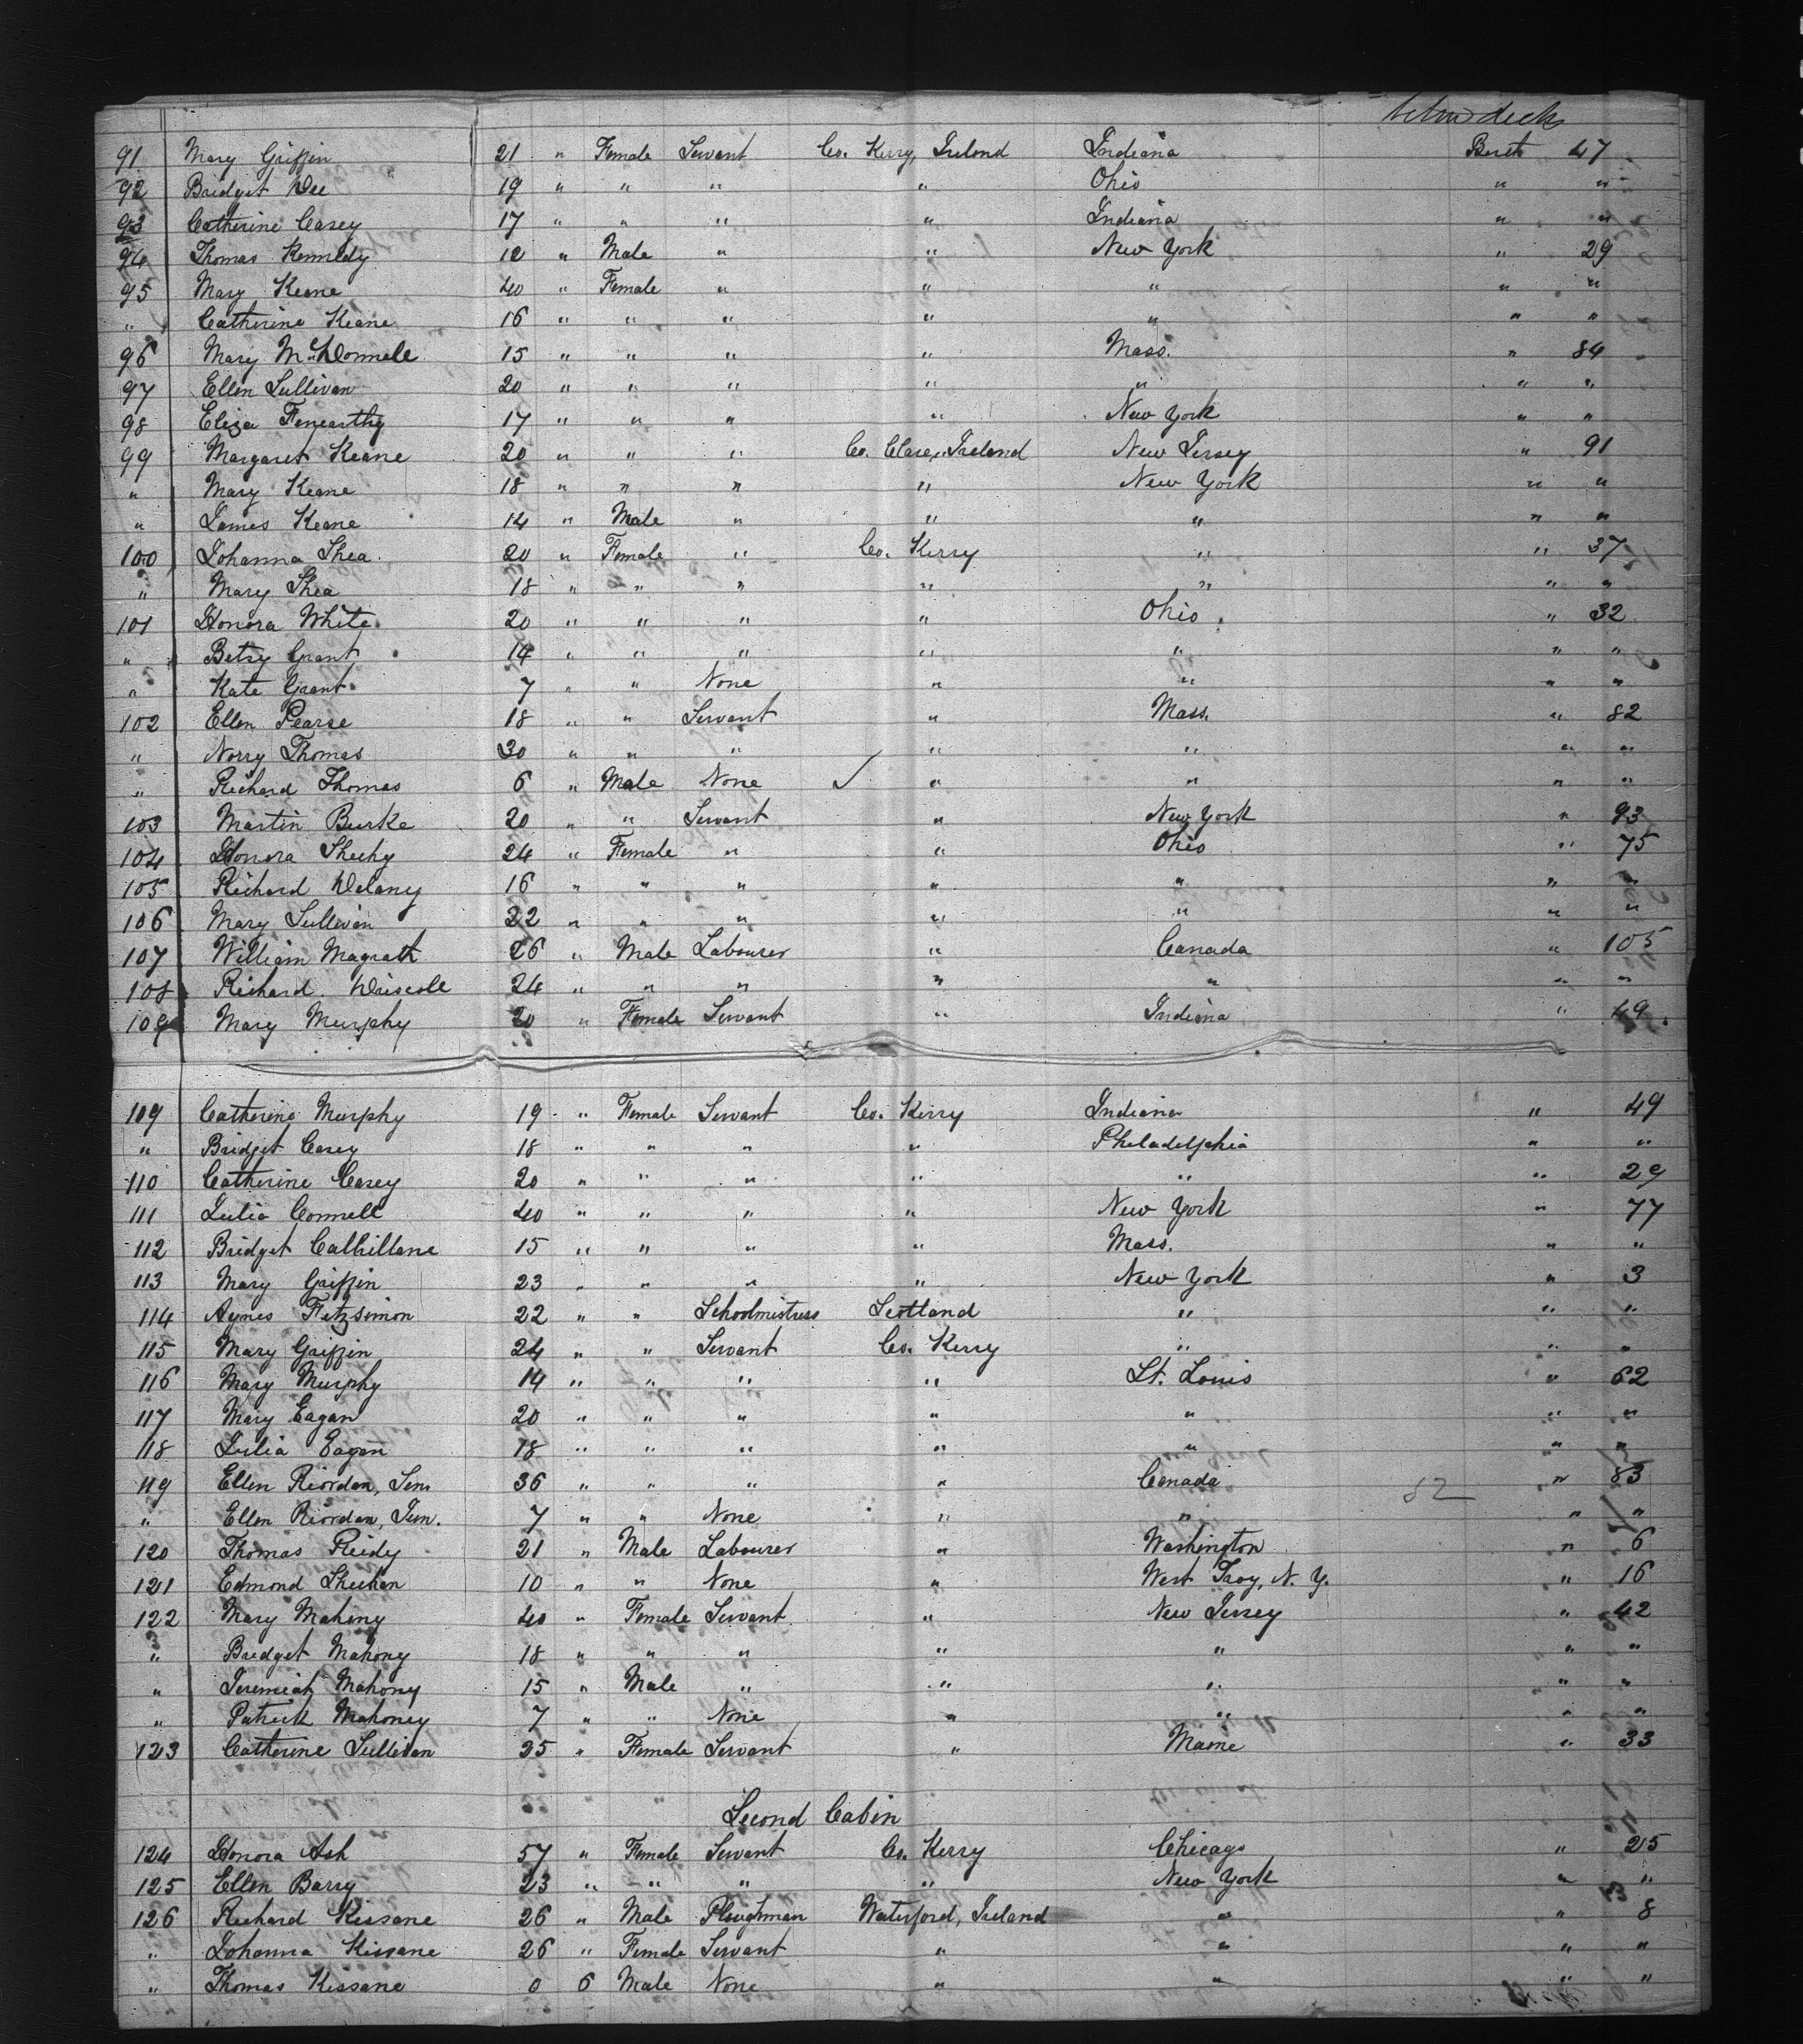 deck
91 Mary Griffin 21 " Female Servant Co. Kerry, Ireland Indiana Berth 47
92 Bridget Dee 19 " " " " Ohio " "
93 Catherine Casey 17 " " " " Indiana " "
94 Thomas Kennedy 12 " Male " " New York " 29
95 Mary Keane 40 " Female " " " " "
" Catherine Keane 16 " " " " " " "
96 Mary McDonnell 15 " " " " Mass. " 84
97 Ellen Sullivan 20 " " " " " " "
98 Eliza 17 " " " " New York " "
99 Margaret Keane 20 " " " Co. Clare, Ireland New Jersey " 91
" Mary Keane 18 " " " " New York " "
" James Keane 14 " Male " " " " "
100 Johanna Shea 20 " Female " Co. Kerry " " 37
" Mary Shea 18 " " " " " " "
101 Honora White 20 " " " " Ohio " 32
" Betsy Grant 14 " " " " " " "
" Kate Grant 7 " " None " " " "
102 Ellen Pearse 18 " " Servant " Mass. " 82
" Norry Thomas 30 " " " " " " "
" Richard Thomas 6 " Male None ✓ " " " "
103 Martin Burke 20 " " Servant " New York " 93
104 Honora Sheehy 24 " Female " " Ohio " 75
105 Richard Delany 16 " " " " " " "
106 Mary Sullivan 22 " " " " " " "
107 William Magrath 26 " Male Labourer " Canada " 105
108 Richard Driscoll 24 " " " " " " "
109 Mary Murphy 20 " Female Servant " Indiana " 49
109 Catherine Murphy 19 " Female Servant Co. Kerry Indiana " 49
" Bridget Casey 18 " " " " Philadelphia " "
110 Catherine Casey 20 " " " " " " 29
111 Julia Connell 40 " " " " New York " 77
112 Bridget Calhillane 15 " " " " Mass. " "
113 Mary Griffin 23 " " " " New York " 3
114 Agnes Fitzsimon 22 " " Schoolmistress Scotland " " "
115 Mary Griffin 24 " " Servant Co. Kerry " " "
116 Mary Murphy 14 " " " " St. Louis " 62
117 Mary Eagan 20 " " " " " " "
118 Julia Eagan 18 " " " " " " "
119 Ellen Riordan, Sen. 36 " " " " Canada 82 " 83
" Ellen Riordan, Jun. 7 " " None " " " "
120 Thomas Reidy 21 " Male Labourer " Washington " 6
121 Edmond Sheehan 10 " " None " West Troy, N. Y. " 16
122 Mary Mahony 40 " Female Servant " New Jersey " 42
" Bridget Mahony 18 " " " " " " "
" Jeremiah Mahony 15 " Male " " " " "
" Patrick Mahoney 7 " " None " " " "
123 Catherine Sullivan 25 " Female Servant " Maine " 33
Second Cabin
124 Honora Ash 57 " Female Servant Co. Kerry Chicago " 25
125 Ellen Barry 23 " " " " New York " "
126 Richard Kissane 26 " Male Ploughman Waterford, Ireland " " 8
" Johanna Kissane 26 " Female Servant " " " "
" Thomas Kissane 0 6 Male None " " " "